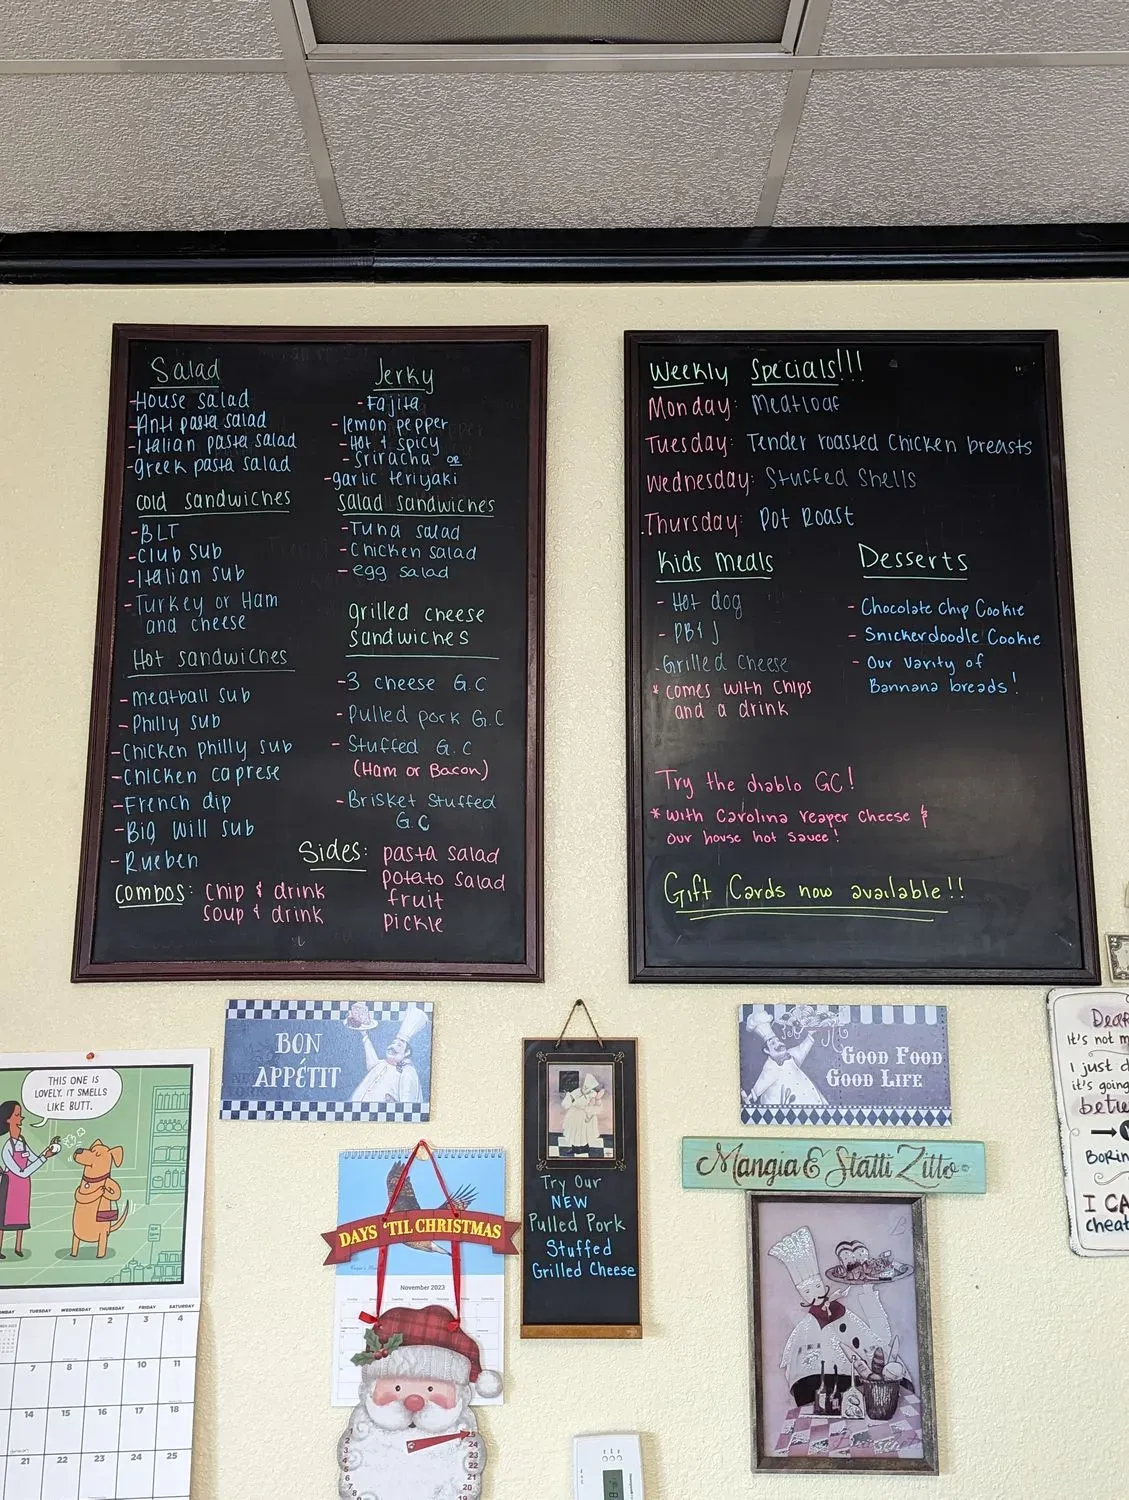 Salad
-House salad
-Anti pasta salad
-Italian pasta salad
-greek pasta salad
cold sandwiches
-BLT
-Club sub
-Italian sub
-Turkey or Ham
and cheese
Hot sandwiches
-meatball sub
-Philly sub
-Chicken philly sub
-Chicken caprese
-French dip
-Big Will sub
-Rueben
Combos: Chip & drink
soup & drink
Jerky
-Fajita
-lemon pepper
-Hot & spicy
-Sriracha or
-garlic teriyaki
salad sandwiches
-Tuna salad
-Chicken salad
-egg salad
grilled cheese
sandwiches
-3 cheese G.C
-Pulled pork G.C
-Stuffed G.C
(Ham or Bacon)
-Brisket Stuffed
G.C
Sides: pasta salad
potato salad
fruit
pickle
Weekly Specials!!!
Monday: Meatloaf
Tuesday: Tender roasted Chicken breasts
Wednesday: Stuffed Shells
Thursday: Pot Roast
Kids meals
-Hot dog
-PB&J
-Grilled Cheese
*comes with chips
and a drink
Desserts
-Chocolate Chip Cookie
-Snickerdoodle Cookie
-Our varity of
Bannana breads!
Try the diablo GC!
*with Carolina reaper cheese &
our house hot sauce!
Gift Cards now available!!
BON
APPÉTIT
GOOD FOOD
GOOD LIFE
Try Our
NEW
Pulled Pork
Stuffed
Grilled Cheese
Mangia E Statti Zitto
THIS ONE IS
LOVELY. IT SMELLS
LIKE BUTT.
TUESDAY WEDNESDAY THURSDAY FRIDAY SATURDAY
1 2 3 4
7 8 9 10 11
14 15 16 17 18
21 22 23 24 25
DAYS 'TIL CHRISTMAS
November 2023
2
3
4
5
6
7
8
25
24
23
22
21
20
19
it's not m
I just d
it's going
BORIN
I CA
cheat